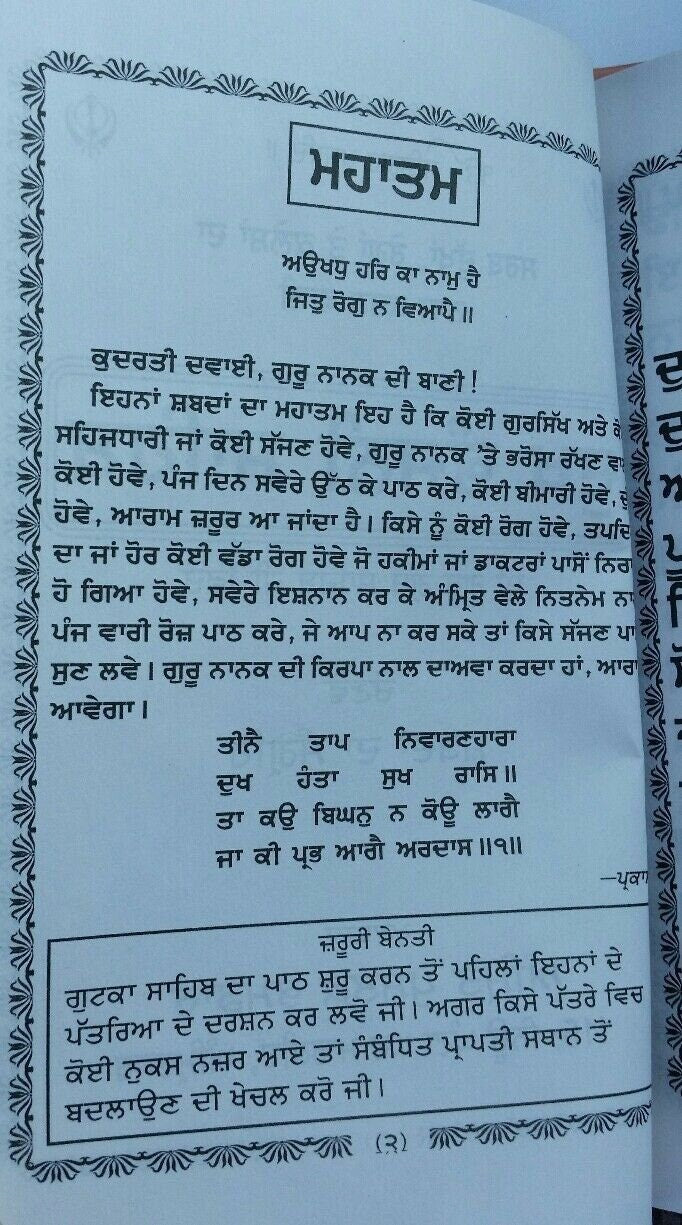 ਮਹਾਤਮ
ਅਉਖਧੁ ਹਰਿ ਕਾ ਨਾਮੁ ਹੈ
ਜਿਤੁ ਰੋਗੁ ਨ ਵਿਆਪੈ॥
ਕੁਦਰਤੀ ਦਵਾਈ, ਗੁਰੂ ਨਾਨਕ ਦੀ ਬਾਣੀ!
ਇਹਨਾਂ ਸ਼ਬਦਾਂ ਦਾ ਮਹਾਤਮ ਇਹ ਹੈ ਕਿ ਕੋਈ ਗੁਰਸਿੱਖ ਅਤੇ
ਸਹਿਜਧਾਰੀ ਜਾਂ ਕੋਈ ਸੱਜਣ ਹੋਵੇ, ਗੁਰੂ ਨਾਨਕ 'ਤੇ ਭਰੋਸਾ ਰੱਖਣ
ਕੋਈ ਹੋਵੇ, ਪੰਜ ਦਿਨ ਸਵੇਰੇ ਉੱਠ ਕੇ ਪਾਠ ਕਰੇ, ਕੋਈ ਬੀਮਾਰੀ ਹੋਵੇ,
ਹੋਵੇ, ਆਰਾਮ ਜ਼ਰੂਰ ਆ ਜਾਂਦਾ ਹੈ। ਕਿਸੇ ਨੂੰ ਕੋਈ ਰੋਗ ਹੋਵੇ, ਤਪਦਿ
ਦਾ ਜਾਂ ਹੋਰ ਕੋਈ ਵੱਡਾ ਰੋਗ ਹੋਵੇ ਜੋ ਹਕੀਮਾਂ ਜਾਂ ਡਾਕਟਰਾਂ ਪਾਸੋਂ ਨਿਰਾ
ਹੋ ਗਿਆ ਹੋਵੇ, ਸਵੇਰੇ ਇਸ਼ਨਾਨ ਕਰ ਕੇ ਅੰਮ੍ਰਿਤ ਵੇਲੇ ਨਿਤਨੇਮ ਨਾ
ਪੰਜ ਵਾਰੀ ਰੋਜ਼ ਪਾਠ ਕਰੇ, ਜੇ ਆਪ ਨਾ ਕਰ ਸਕੇ ਤਾਂ ਕਿਸੇ ਸੱਜਣ ਪਾ
ਸੁਣ ਲਵੇ। ਗੁਰੂ ਨਾਨਕ ਦੀ ਕਿਰਪਾ ਨਾਲ ਦਾਅਵਾ ਕਰਦਾ ਹਾਂ, ਆਰਾ
ਆਵੇਗਾ।
ਤੀਨੈ ਤਾਪ ਨਿਵਾਰਣਹਾਰਾ
ਦੁਖ ਹੰਤਾ ਸੁਖ ਰਾਸਿ॥
ਤਾ ਕਉ ਬਿਘਨੁ ਨ ਕੋਊ ਲਾਗੈ
ਜਾ ਕੀ ਪ੍ਰਭ ਆਗੈ ਅਰਦਾਸ॥੧॥
—ਪ੍ਰਕਾ
ਜ਼ਰੂਰੀ ਬੇਨਤੀ
ਗੁਟਕਾ ਸਾਹਿਬ ਦਾ ਪਾਠ ਸ਼ੁਰੂ ਕਰਨ ਤੋਂ ਪਹਿਲਾਂ ਇਹਨਾਂ ਦੇ
ਪੱਤਰਿਆ ਦੇ ਦਰਸ਼ਨ ਕਰ ਲਵੋ ਜੀ। ਅਗਰ ਕਿਸੇ ਪੱਤਰੇ ਵਿਚ
ਕੋਈ ਨੁਕਸ ਨਜ਼ਰ ਆਏ ਤਾਂ ਸੰਬੰਧਿਤ ਪ੍ਰਾਪਤੀ ਸਥਾਨ ਤੋਂ
ਬਦਲਾਉਣ ਦੀ ਖੇਚਲ ਕਰੋ ਜੀ।
(੩)